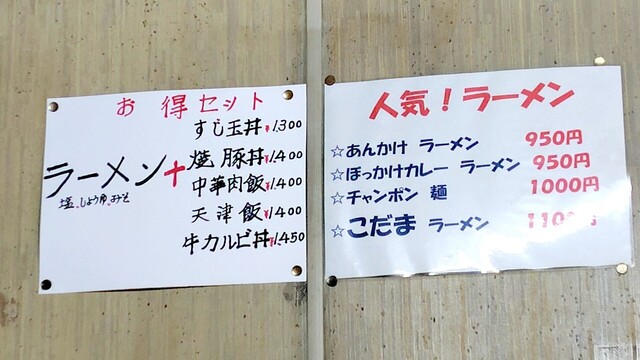 お得セット
ラーメン+
塩、しょうゆ、みそ
すじ玉丼 ¥1300
焼豚丼 ¥1,400
中華肉飯 ¥1,400
天津飯 ¥1,400
牛カルビ丼 ¥1,450
人気！ラーメン
☆あんかけ ラーメン 950円
☆ぼっかけカレー ラーメン 950円
☆チャンポン 麺 1000円
☆こだま ラーメン 1100円